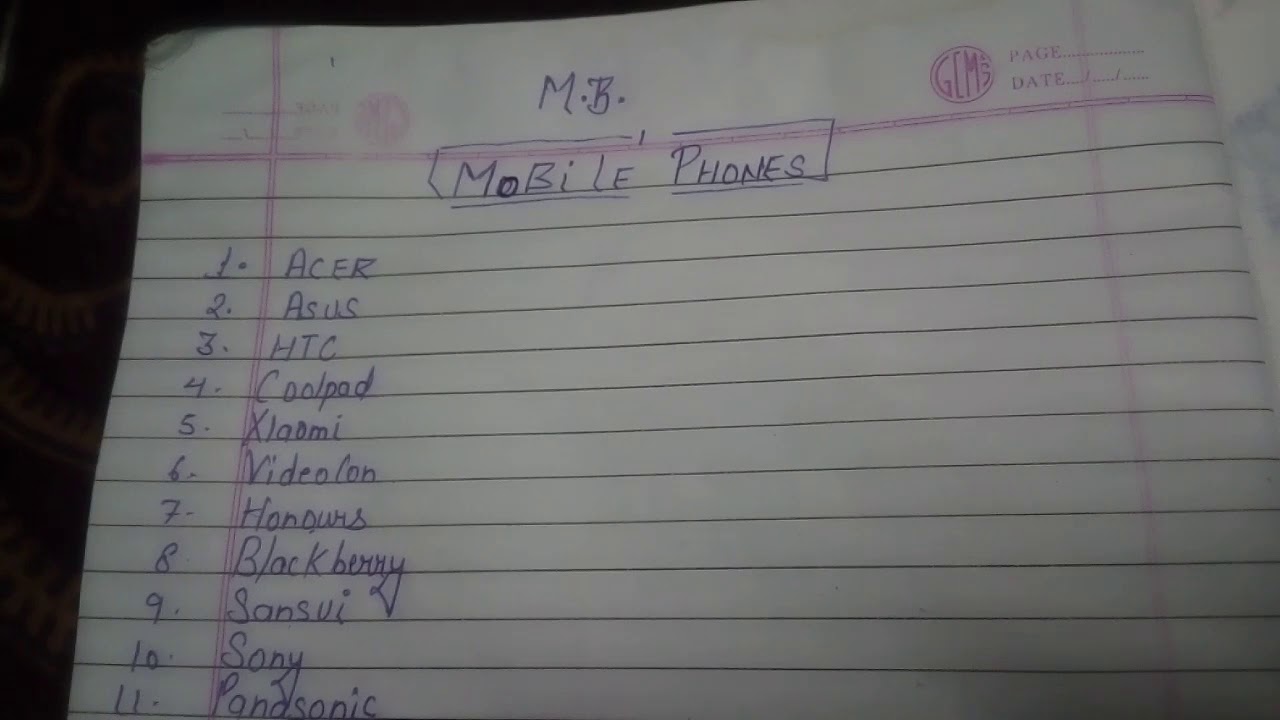 M.B.
GEMS
PAGE....................
DATE..../...../......
MOBiLE PHONES
1. ACER
2. ASUS
3. HTC
4. Coolpad
5. XIaomi
6. Videolon
7. Honours
8 Blackberry
9. Sansui
10. Sony
11. Pandsonic